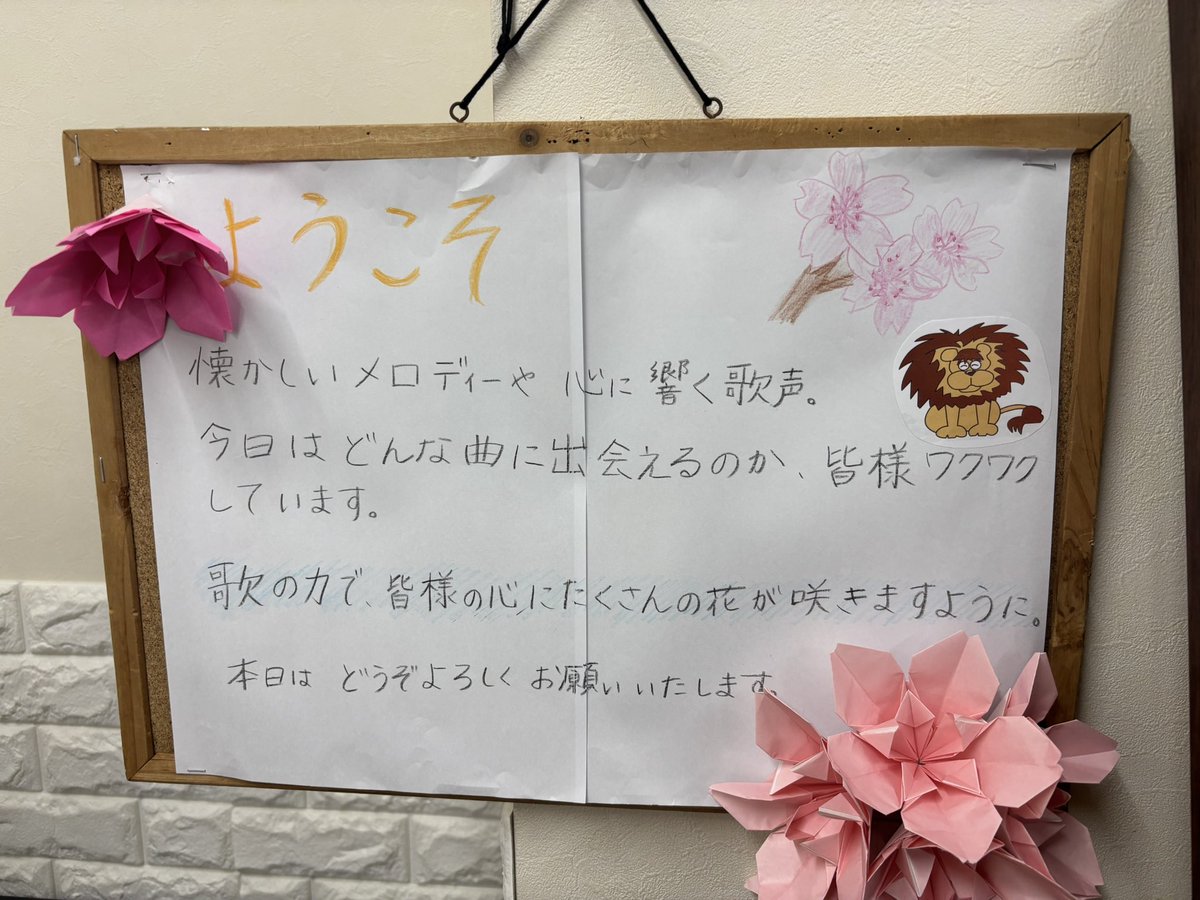 ようこそ
懐かしいメロディーや 心に響く歌声。
今日はどんな曲に出会えるのか、皆様ワクワク
しています。
歌の力で、皆様の心にたくさんの花が咲きますように。
本日は どうぞよろしくお願いいたします。